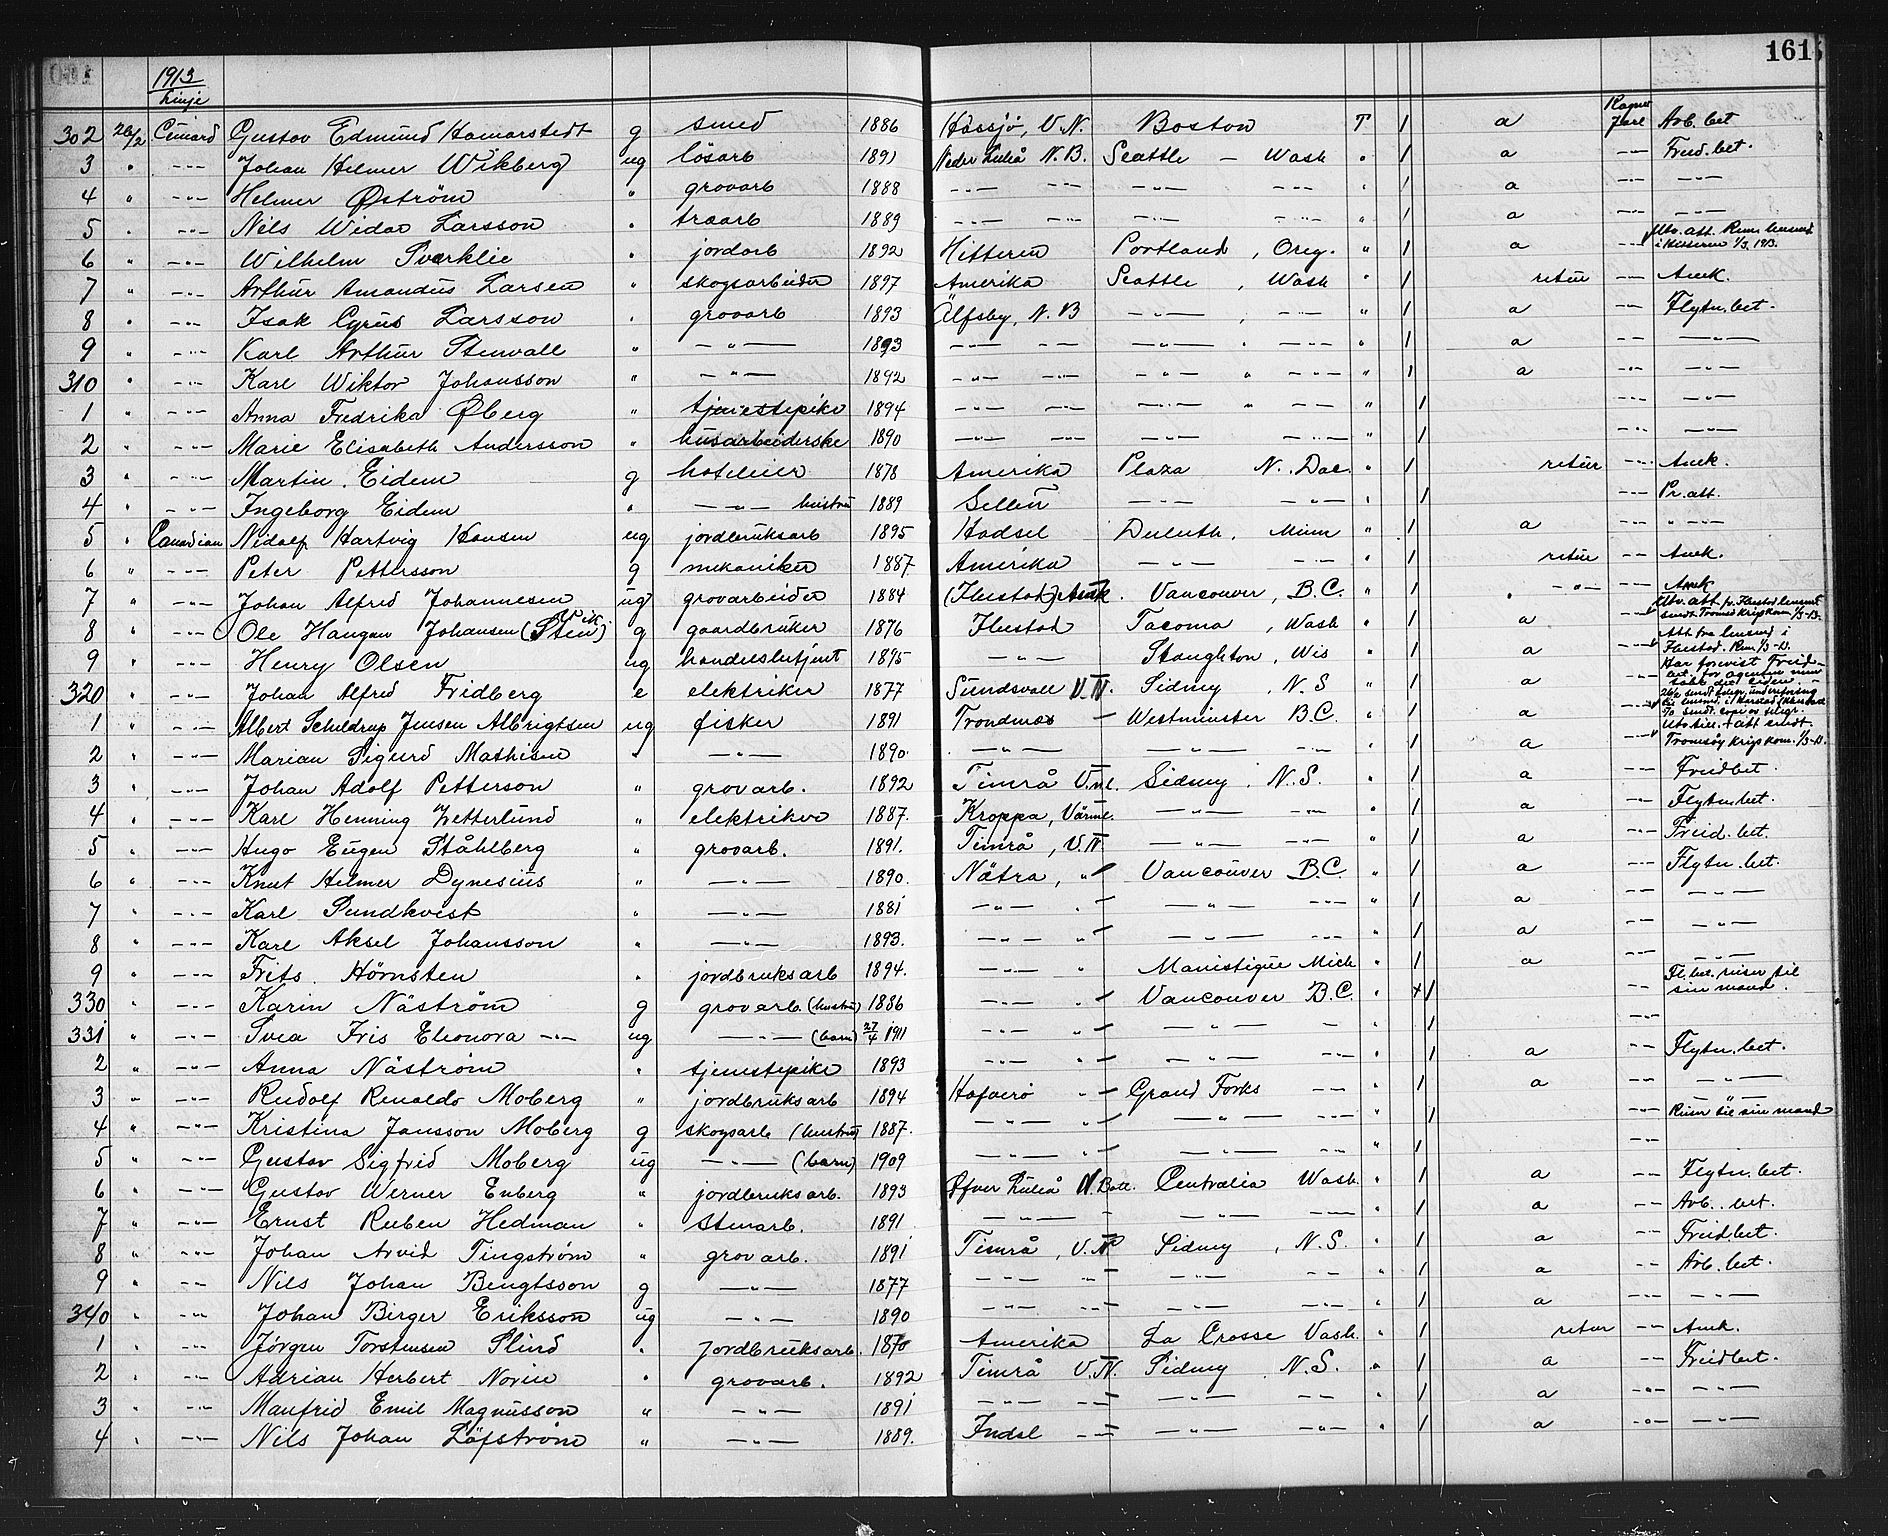 161
1913
Linje
302 26/2 Cunard Gustav Edmund Hamarstedt g smed 1886 Hässjö, V.N. Boston T 1 a Ragnv Jarl Arb. bet
3 " -"- Johan Helmer Wikberg ug lösarb 1891 Neder Luleå N.B. Seattle - Wash " 1 a -"- Freid. bet.
4 " -"- Helmer Øström " grovarb 1888 -"- -"- -"- -"- " 1 a -"- -"-
5 " -"- Nils Widar Larsson " træarb 1889 -"- -"- -"- -"- " 1 a -"- -"-
6 " -"- Wilhelm Sværklie " jordarb 1892 Hitteren Portland, Oreg. " 1 a -"- Utv. att. Rem. lensmd i Hitteren 1/3 1913.
7 " -"- Arthur Amandus Larsen " skogsarbeider 1897 Amerika Seattle, Wash " 1 retur -"- Amk.
8 " -"- Isak Cyrus Larsson " grovarb 1893 Älfsby, N.B -"- , -"- " 1 a -"- Flytn. bet.
9 " -"- Karl Arthur Stenvall " -"- 1893 -"- -"- -"- -"- " 1 a -"- -"-
310 " -"- Karl Wiktor Johansson " -"- 1892 -"- -"- -"- -"- " 1 a -"- -"-
1 " -"- Anna Fredrika Øberg " tjenestepike 1894 -"- -"- -"- -"- " 1 -"- -"-
2 " -"- Marie Elisabeth Andersson " husarbeiderske 1890 -"- -"- -"- -"- " 1 -"- -"-
3 " -"- Martin Eidem g hoteleier 1878 Amerika Plaza N. Dac. " 1 retur -"- Amk.
4 " -"- Ingeborg Eidem " -"- hustru 1889 Selleii -"- -"- " 1 -"- Pr. att.
5 " Canadian Nidolf Hartvig Hansen ug jordbruksarb 1895 Hadsel Duluth, Minn " 1 a -"- " -"-
6 " -"- Peter Pettersson g mekaniker 1887 Amerika -"- -"- " 1 retur -"- Amk.
7 " -"- Johan Alfred Johannesen ug grovarbeider 1884 (Ibestad) Amk. Vancouver, B.C. " 1 -"- -"- Amk
8 " -"- Ole Haugan Johansen (Stein) Vik g gaardbruker 1876 Ibestad Tacoma, Wash " 1 a -"- Utv. att fr. Ibestad lensmd sendt Tromsø Krigskom 1/3-13.
9 " -"- Henry Olsen ug handelsbetjent 1895 -"- Stoughton, Wis " 1 a -"- Att fra lensmd i Ibestad. Rem 1/3-13.
320 " -"- Johan Alfred Fridberg e elektriker 1877 Sundsvall V.N. Sidney, N.S " 1 a -"- Har forevist Freidbet. for agenten
1 " -"- Albert Scheldrup Jensen Albrigtsen ug fisker 1891 Trondenes - Westminster B.C. " 1 a -"-
2 " -"- Marian Sigurd Mathisen " -"- 1890 -"- -"- -"- " 1 a -"- Utv. till. + att sendt. Tromsøy Krigskom. 1/3-13.
3 " -"- Johan Adolf Petterson " grovarb. 1892 Timrå V.nl. Sidney. N.S. " 1 a -"- Freidbet.
4 " -"- Karl Henning Zetterlund " elektriker 1887. Kroppa, Värml. -"- -"- " 1 a -"- Flytn. bet.
5 " -"- Hugo Eugen Ståhlberg " grovarb. 1891. Timrå, V.N -"- -"- " 1 a -"- Freid. bet.
6 " -"- Knut Helmer Dynesius " -"- 1890. Nätra, " Vancouver B.C. " 1 a -"- Flytn. bet.
7 " -"- Karl Sundkvist " -"- 1881 -"- " -"- -"- " 1 a -"- -"-
8 " -"- Karl Aksel Johansson " -"- 1893. -"- " -"- -"- " 1 a -"- -"-
9 " -"- Frits. Hörnsten " jordbruksarb 1894. -"- " Manistique Mich " 1 a -"- -"-
330 " -"- Karin Näström g grovarb. (hustru) 1886 -"- " Vancouver B.C. " 1 -"- Fl. bet. reiser til sin mand.
331 " -"- Svea Fris Eleonora -"- ug -"- (barn) 27/4 1911 -"- " -"- - " 1 -"-
2 " -"- Anna Näström " tjenestepike 1893 -"- " -"- -"- " 1 a -"- Flytn. bet.
3 " -"- Rudolf Renaldo Moberg " jordbruksarb 1894 Hafverö " Grand Forks -"- " 1 a -"- -"-
4 " -"- Kristina Jansson Moberg g skogsarb (hustru) 1887. -"- " -"- -"- " 1 -"- Reiser til sin mand
5 " -"- Gustav Sigfrid Moberg ug -"- (barn) 1909 -"- " -"- -"- " 1 -"-
6 " -"- Gustav Werner Enberg " jordbruksarb. 1893 Øfver Luleå N.Bott. Centralia Wash. " 1 a -"- Flytn. bet.
7 " -"- Ernst Ruben Hedman " stenarb. 1891 -"- - -"- -"- 1 a -"- Arb. bet.
8 " -"- Johan Arvid Tingström " grovarb. 1891 Timrå, V.N Sidney, N.S. " 1 a -"- Freidbet.
9 " -"- Nils Johan Bengtsson g -"- 1877 -"- -"- -"- -"- " 1 a -"- Arb. bet.
340 " -"- Johan Birger Eriksson ug -"- 1890 -"- -"- -"- -"- " 1 a -"- -"-
1 " -"- Jørgen Torstensen Slind " jordbruksarb. 1870 Amerika La Crosse Wash. " 1 retur -"- Amk.
2 " -"- Adrian Herbert Norin " grovarb. 1892 Timrå V.N. Sidney, N.S. " 1 a -"- Freidbet.
3 " -"- Manfrid Emil Magnusson " -"- 1891 -"- -"- -"- -"- " 1 a -"- -"-
4 " -"- Nils Johan Löfström " -"- 1889. Indal -"- -"- -"- " 1 a -"- -"-